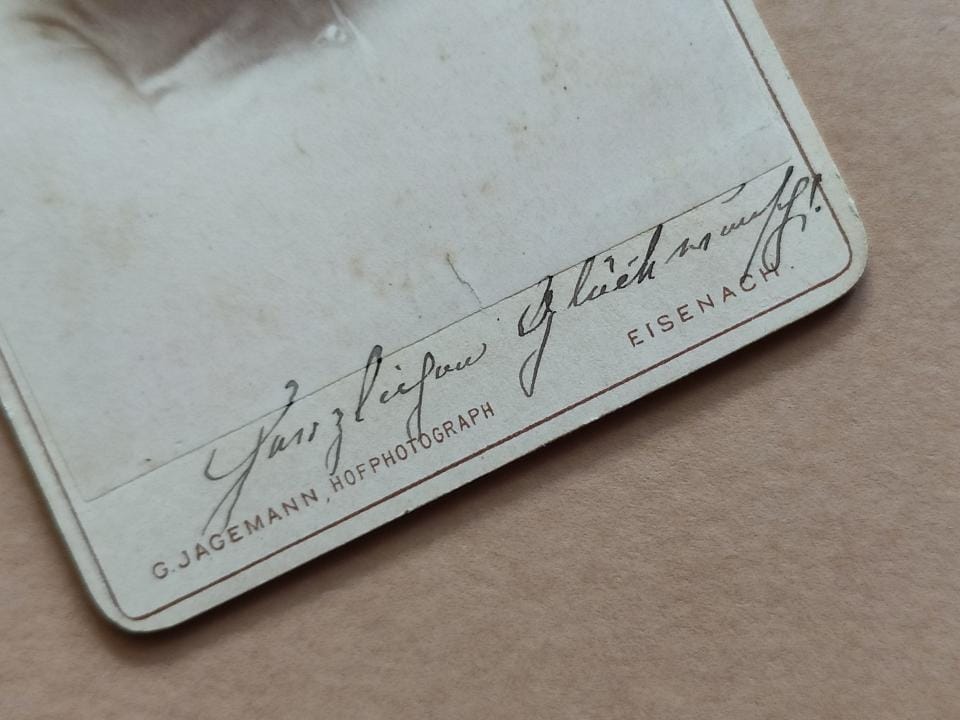 Herzlichen Glückwunsch!
G. JAGEMANN, HOFPHOTOGRAPH EISENACH.